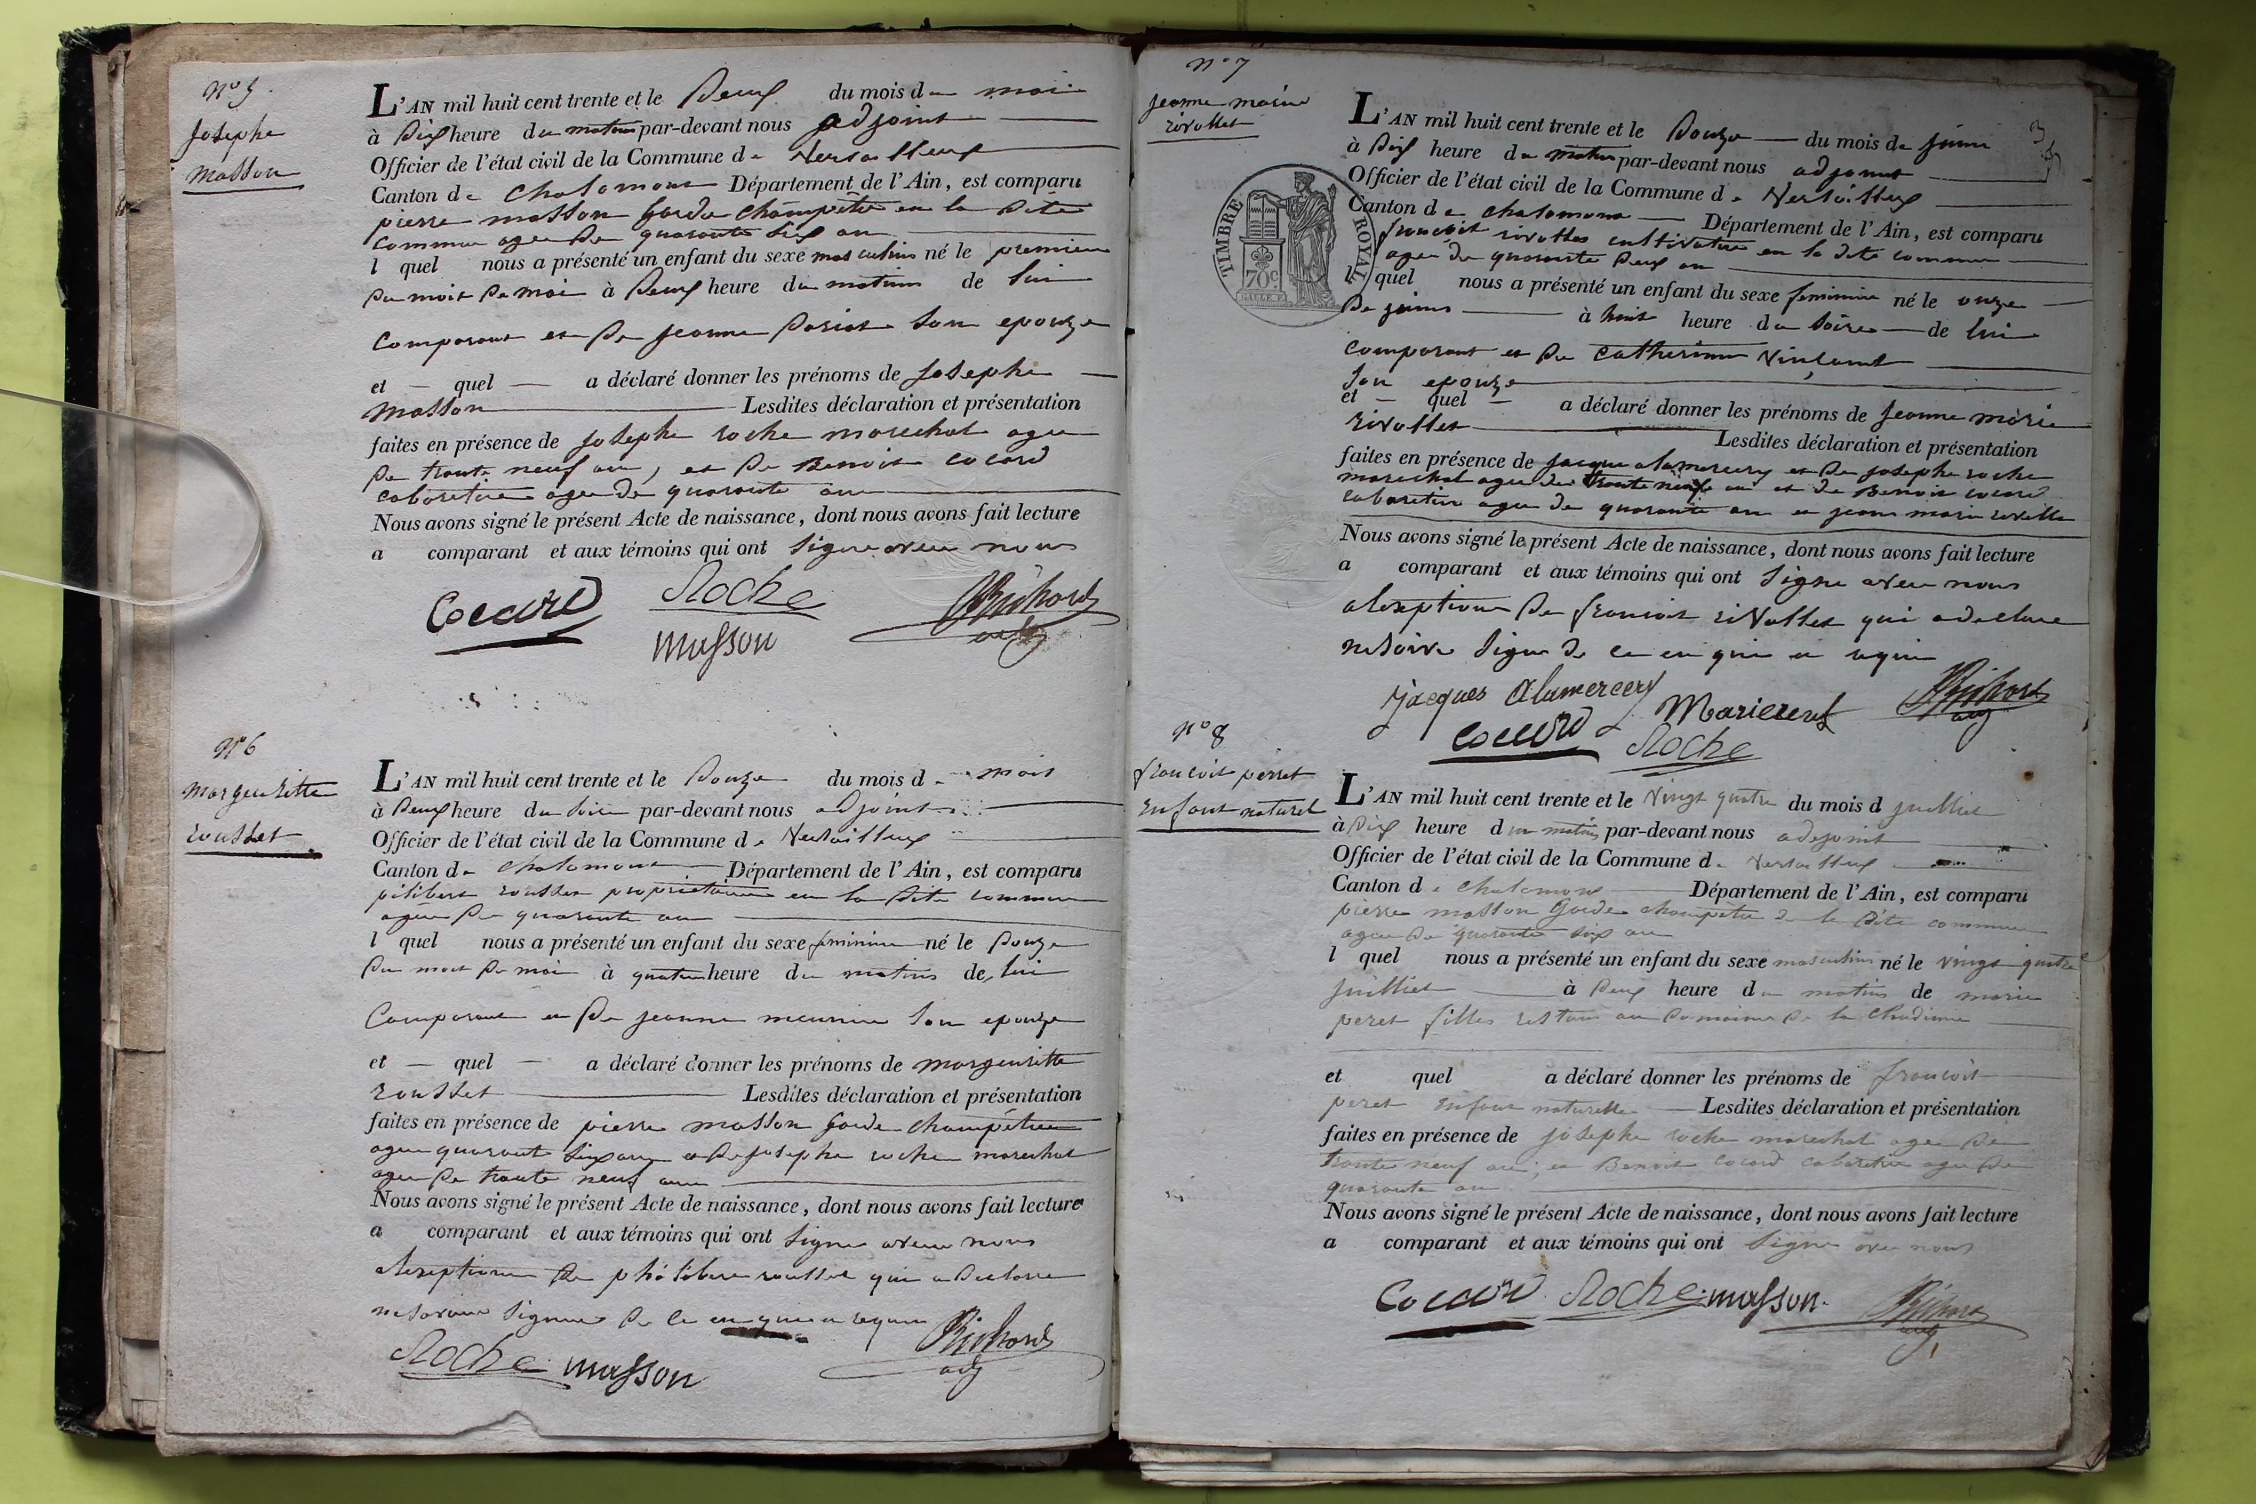 N° 5.
Josephe
Masson
L'AN mil huit cent trente et le Deux du mois de mai
à Dix heure du matin par-devant nous adjoint
Officier de l'état civil de la Commune de Versailleux
Canton de Chalamont Département de l'Ain, est comparu
pierre masson Garde Champetre en la Dite
commune agee De quarante Six an
l quel nous a présenté un enfant du sexe masculin né le premier
Du mois De mai à Deux heure du matin de lui
Comparant et De jeanne Doriat Son epouze
et — quel — a déclaré donner les prénoms de Josephe
Masson Lesdites déclaration et présentation
faites en présence de Josephe roche marechal agee
De trante neuf an, et De Benoit cocard
cabaretier agee de quarante an
Nous avons signé le présent Acte de naissance, dont nous avons fait lecture
a comparant et aux témoins qui ont Signe avec nous
Cocard Roche Richard
masson adj
N° 6
Margueritte
rousset
L'AN mil huit cent trente et le Douze du mois de mais
à Deux heure du Soire par-devant nous adjoint
Officier de l'état civil de la Commune de Versailleux
Canton de Chalamont Département de l'Ain, est comparu
pilibert rousset proprietaire en la Dite commune
agee De quarante an
l quel nous a présenté un enfant du sexe feminin né le Douze
Du mois De mai à quatre heure du matin de lui
Comparant et De jeanne meunier Son epouze
et — quel — a déclaré donner les prénoms de margueritte
rousset Lesdites déclaration et présentation
faites en présence de pierre masson Garde champêtre
agee quarante Six an et De Josephe roche marechal
agee De trante neuf an
Nous avons signé le présent Acte de naissance, dont nous avons fait lecture
a comparant et aux témoins qui ont Signe avec nous
alexption De philibert rousset qui a Declare
ne Savoir Signe De ce enquis et requis
Richard
Roche masson adj
N° 7
Jeanne marie
rivollet
L'AN mil huit cent trente et le Douze du mois de juin
à Dix heure du matin par-devant nous adjoint
Officier de l'état civil de la Commune de Versailleux
Canton de chalamont Département de l'Ain, est comparu
francoit rivollet cultivateur en la dite commune
agee de quarante Deux an
l quel nous a présenté un enfant du sexe feminin né le onze
De juin à huit heure du Soire de lui
Comparant et De Catherinne Vinçant
Son epouze
et — quel — a déclaré donner les prénoms de Jeanne marie
rivollet Lesdites déclaration et présentation
faites en présence de Jacque alamercery et De Josephe roche
marechal agee de trante neuf an et de Benoit cocard
cabaretier agee de quarante an et jean marie
Nous avons signé le présent Acte de naissance, dont nous avons fait lecture
a comparant et aux témoins qui ont Signe avec nous
alexption De francoit rivollet qui a declare
ne Savoir Signe De ce enquis et requis
jacques alamercery Richard
Cocard Roche adj
TIMBRE ROYAL
70c.
N° 8
francoit perret
Enfant naturel
L'AN mil huit cent trente et le Vingt quatre du mois d juilliet
à Dix heure du matin par-devant nous adjoint
Officier de l'état civil de la Commune de Versailleux
Canton de Chalamont Département de l'Ain, est comparu
pierre masson Garde champetre de la Dite commune
agee De quarante Six an
l quel nous a présenté un enfant du sexe masculin né le Vingt quatre
juilliet à Deux heure du matin de marie
peret filles restant au Domaine De la
et quel a déclaré donner les prénoms de francoit
peret Enfant naturelle Lesdites déclaration et présentation
faites en présence de Josephe roche marechal agee De
trante neuf an, et Benoit Cocard cabaretier agee De
quarante an
Nous avons signé le présent Acte de naissance, dont nous avons fait lecture
a comparant et aux témoins qui ont Signe avec nous
Cocard Roche masson Richard
adj